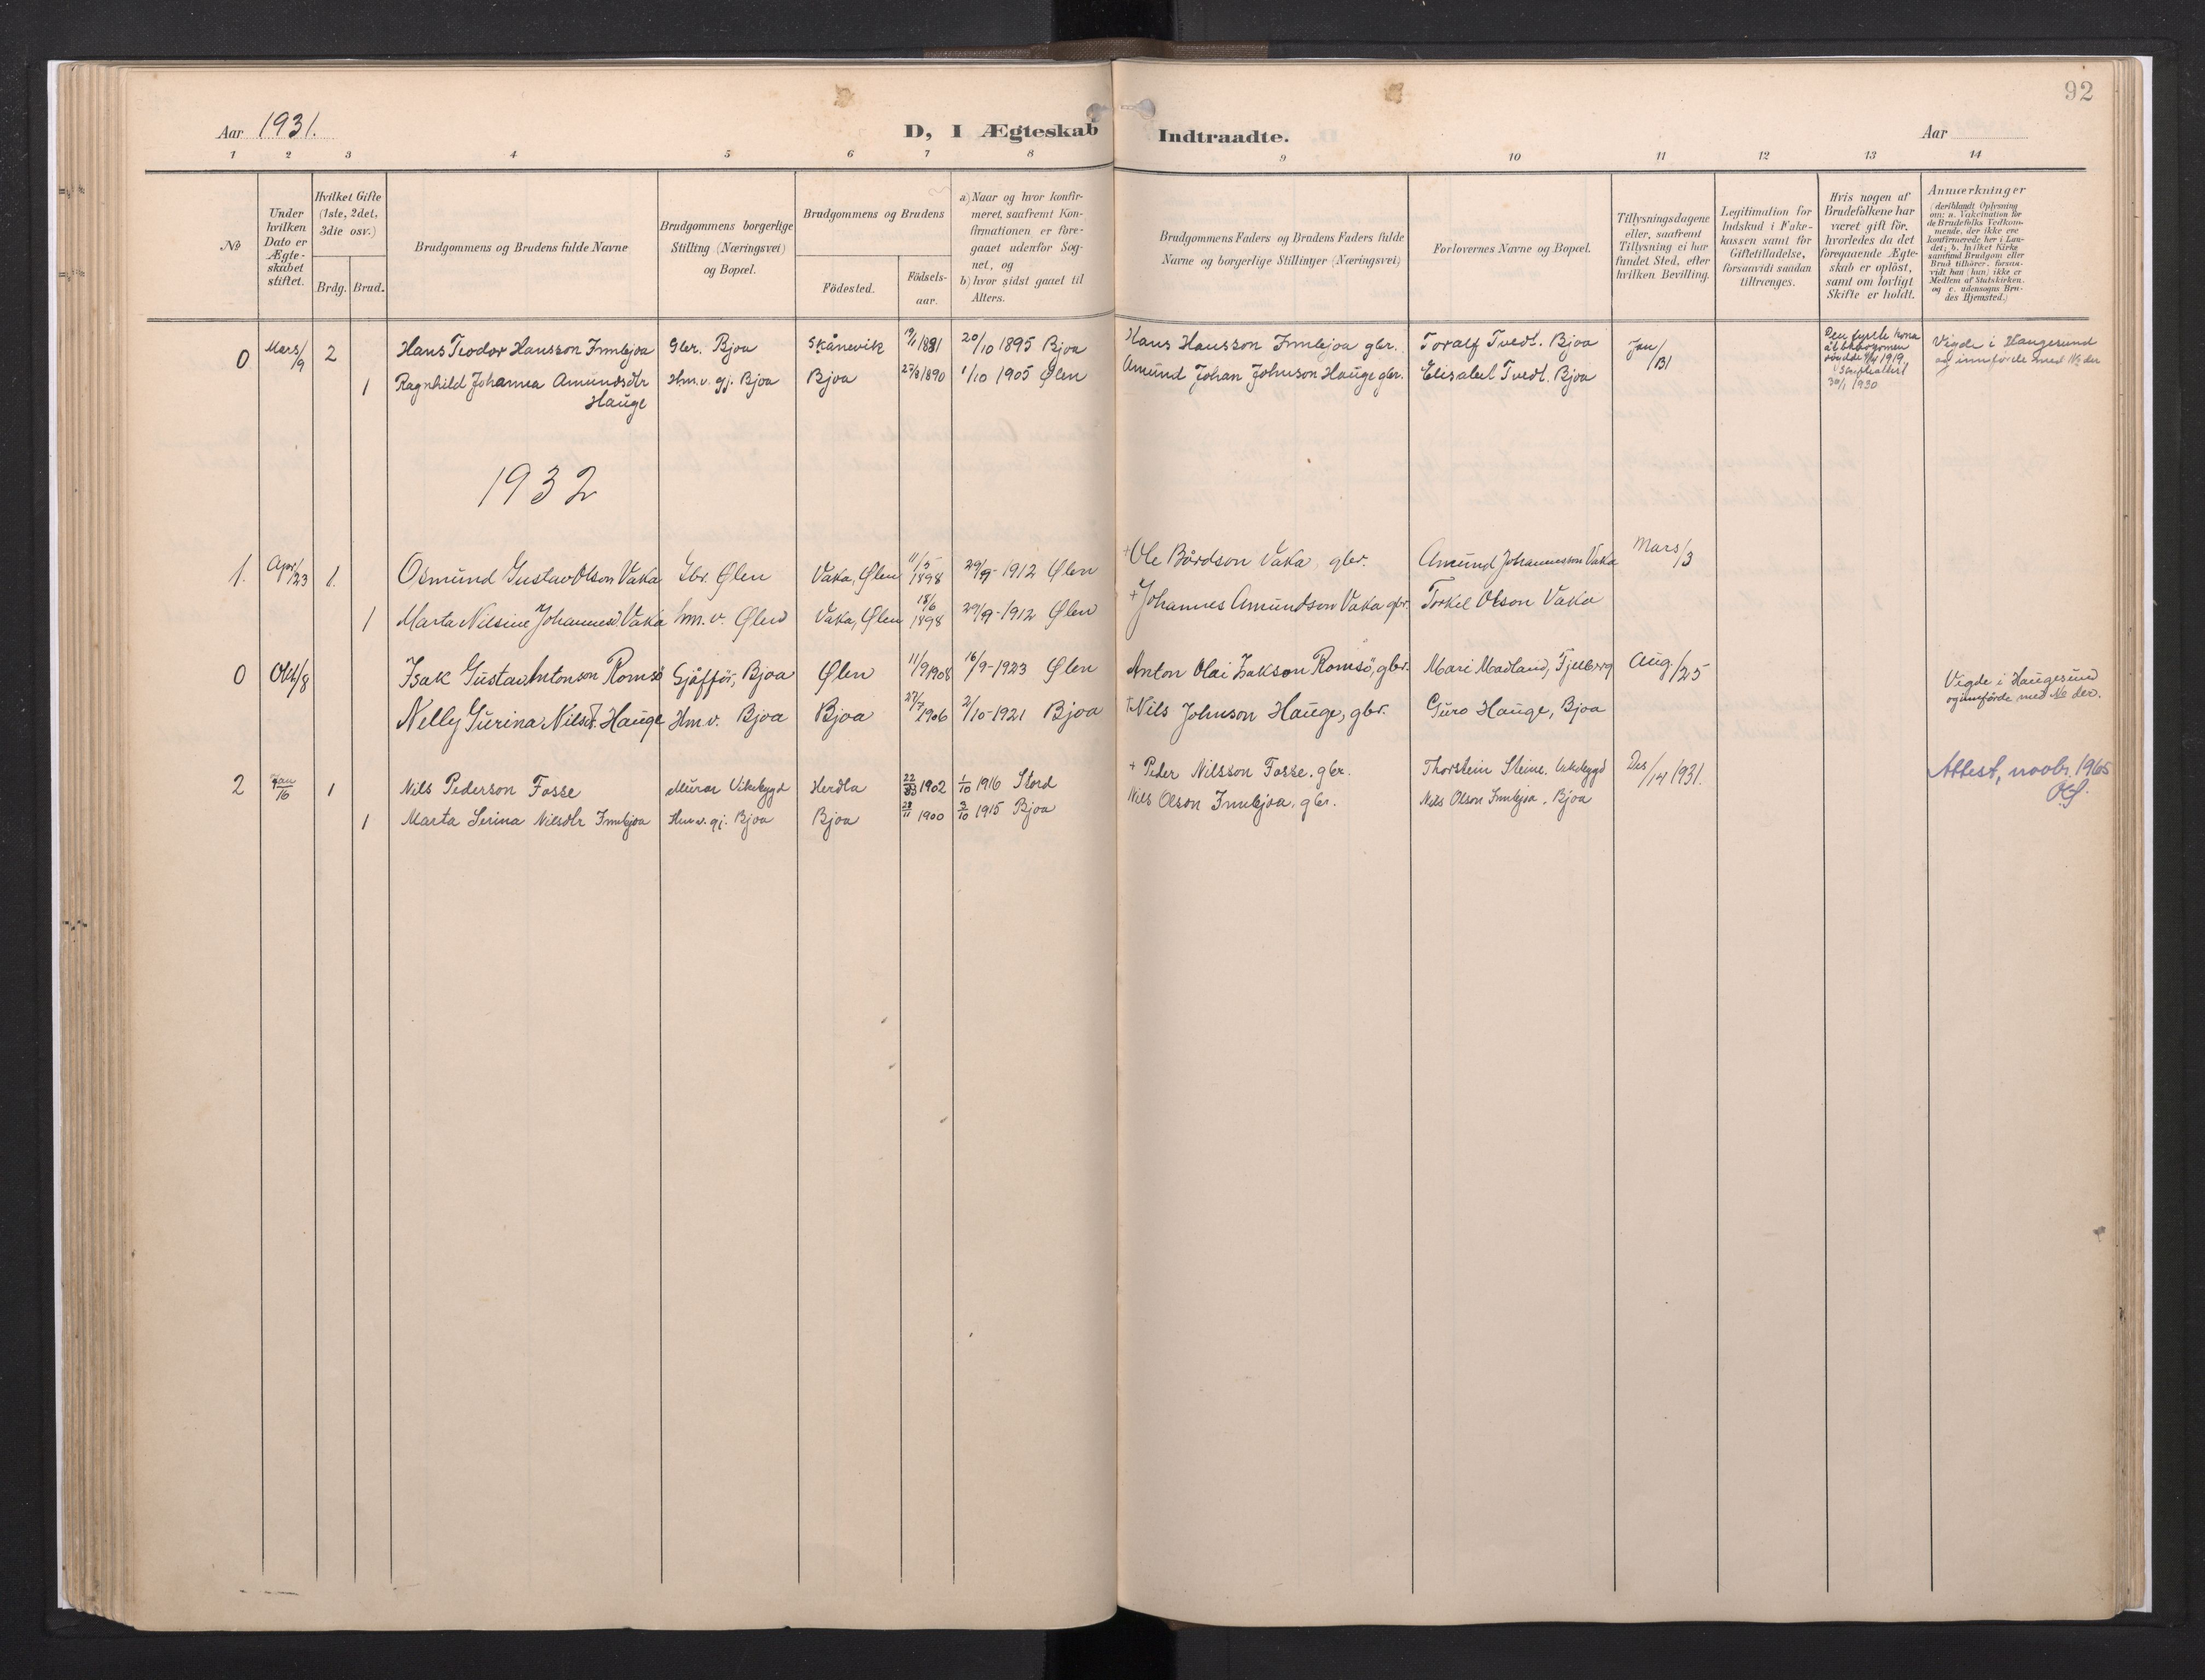 92
Aar 1931. D, I Ægteskab Indtraadte. Aar
1 2 3 4 5 6 7 8 9 10 11 12 13 14
No
Under hvilken Dato er Ægteskabet stiftet.
Hvilket Gifte (1ste, 2det, 3die osv.)
Brdg. Brud.
Brudgommens og Brudens fulde Navne
Brudgommens borgerlige Stilling (Næringsvei) og Bopæl.
Brudgommens og Brudens
Födested.
Födselsaar.
a) Naar og hvor konfirmeret, saafremt Konfirmationen er foregaaet udenfor Sognet, og
b) hvor sidst gaaet til Alters.
Brudgommens Faders og Brudens Faders fulde Navne og borgerlige Stillinger (Næringsvei)
Forlovernes Navne og Bopæl.
Tillysningsdagene eller, saafremt Tillysning ei har fundet Sted, efter hvilken Bevilling.
Legitimation for Indskud i Enkekassen samt for Giftetilladelse, forsaavidt saadan tiltrænges.
Hvis nogen af Brudefolkene har været gift för, hvorledes da det foregaaende Ægteskab er oplöst, samt om lovligt Skifte er holdt.
Anmærkninger (deriblandt Oplysning om: a. Vakcination for de Brudefolks Vedkommende, der ikke ere konfirmerede her i Landet; b. hvilket Kirkesamfund Brudgom eller Brud tilhører, forsaavidt han (hun) ikke er Medlem af Statskirken, og c. udensogns Brudes Hjemsted.)
0 Mars/9 2 Hans Teodor Hansson Innbjoa Gbr. Bjoa Skånevik 19/1 1881 20/10 1895 Bjoa Hans Hansson Innbjoa gbr. Toralf Tvedt. Bjoa Jan/31 Den fyrste kona åt brudgomen döydde 9/4 1919, Skifteattest 30/1 1930 Vigde i Haugesund og innförde med No der
1 Ragnhild Johanna Amundsdtr Hauge Hm.v. gj. Bjoa Bjoa 27/8 1890 1/10 1905 Ølen Amund Johan Johnson Hauge gbr. Elisabet Tvedt. Bjoa
1932
1. Apr/23 1. Osmund Gustav Olson Vaka Gbr. Ølen Vaka, Ølen 11/5 1898 29/9-1912 Ølen +Ole Bårdson Vaka, gbr. Amund Johannesson Vaka Mars/3
1 Marta Nilsine Johannesd. Vaka hm.v. Ølen Vaka, Ølen 18/6 1898 29/9-1912 Ølen +Johannes Amundson Vaka gbr. Torkel Olson Vaka
0 Okt/8 Isak Gustav Antonson Romsö Sjåfför, Bjoa Ølen 11/9 1908 16/9-1923 Ølen Anton Olai Isakson Romsö, gbr. Mari Madland, Fjelberg Aug./25 Vigde i Haugesund og innförde med No der.
Nelly Gurina Nilsd. Hauge Hm.v. Bjoa Bjoa 27/7 1906 2/10-1921 Bjoa +Nils Johnson Hauge, gbr. Guro Hauge, Bjoa
2 Jan/16 1 Nils Pederson Fosse Murar Vikebygd Herdla 1902 1/10 1916 Stord + Peder Nilsson Fosse. gbr. Thorstein Steine. Vikebygd Des/14 1931. Attest, novbr. 1965
1 Marta Serina Nilsdtr Innbjoa Hm.v. gj. Bjoa Bjoa 28/11 1900 3/10 1915 Bjoa Nils Olson Innbjoa. gbr. Nils Olson Innbjoa. Bjoa